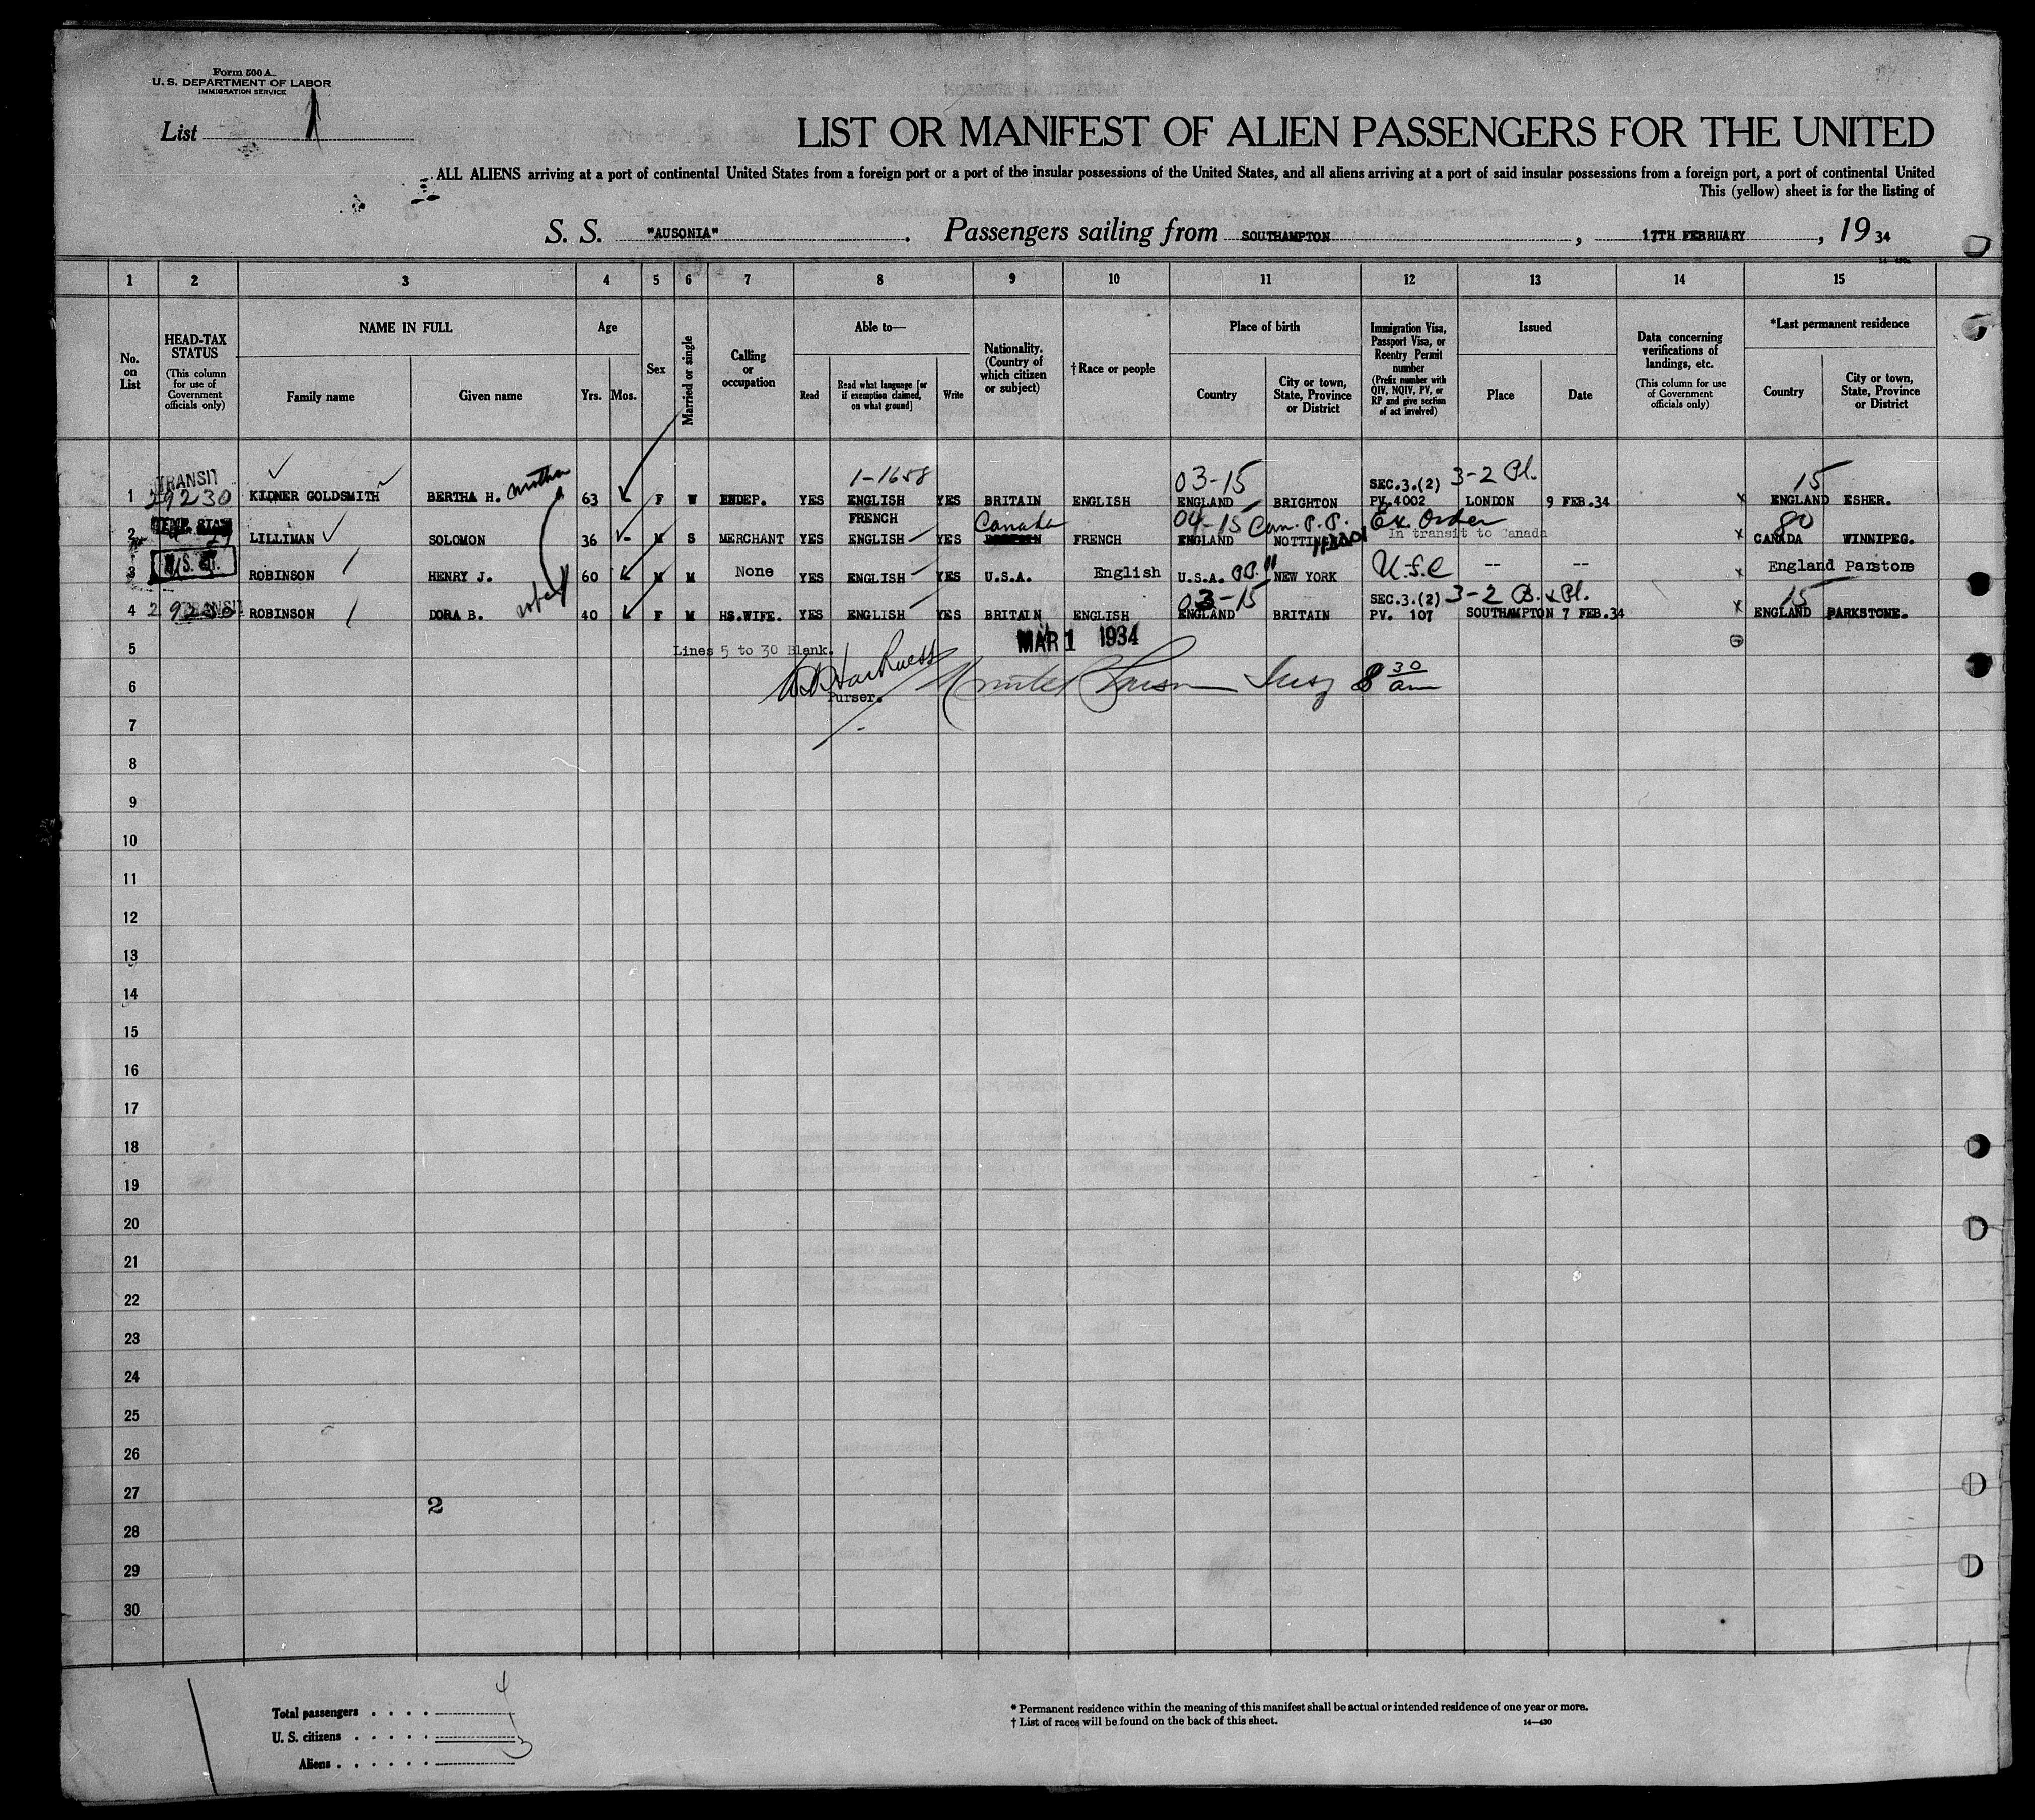 Form 500 A
U. S. DEPARTMENT OF LABOR
IMMIGRATION SERVICE
List 1
LIST OR MANIFEST OF ALIEN PASSENGERS FOR THE UNITED
ALL ALIENS arriving at a port of continental United States from a foreign port or a port of the insular possessions of the United States, and all aliens arriving at a port of said insular possessions from a foreign port, a port of continental United
This (yellow) sheet is for the listing of
S. S. "AUSONIA". Passengers sailing from SOUTHAMPTON, 17TH FEBRUARY, 19 34
1 2 3 4 5 6 7 8 9 10 11 12 13 14 15
No. on List
HEAD-TAX STATUS (This column for use of Government officials only)
NAME IN FULL
Family name
Given name
Age
Yrs. Mos.
Sex
Married or single
Calling or occupation
Able to—
Read
Read what language [or if exemption claimed, on what ground]
Write
Nationality. (Country of which citizen or subject)
†Race or people
Place of birth
Country
City or town, State, Province or District
Immigration Visa, Passport Visa, or Reentry Permit number (Prefix number with QIV, NQIV, PV, or RP and give section of act involved)
Issued
Place
Date
Data concerning verifications of landings, etc. (This column for use of Government officials only)
*Last permanent residence
Country
City or town, State, Province or District
TRANSIT 1-1658 03-15 SEC.3.(2) 3-2 Pl. 15
1 29230 KIDNER GOLDSMITH BERTHA H. mother 63 F W INDEP. YES ENGLISH YES BRITAIN ENGLISH ENGLAND BRIGHTON PV.4002 LONDON 9 FEB.34 x ENGLAND ESHER.
FRENCH Canada 04-15 Can. P.P. Ex. Order 80
2 LILLIMAN SOLOMON 36 M S MERCHANT YES ENGLISH YES FRENCH ENGLAND In transit to Canada x CANADA WINNIPEG.
3 U.S. ROBINSON HENRY J. 60 M M None YES ENGLISH YES U.S.A. English U.S.A. PP. NEW YORK U.S.C -- -- x England Parstone
03-15 SEC.3.(2) 3-2 B. & Pl. 15
4 29230 TRANSIT ROBINSON DORA B. 40 F M HS.WIFE. YES ENGLISH YES BRITAIN ENGLISH ENGLAND BRITAIN PV. 107 SOUTHAMPTON 7 FEB.34 x ENGLAND PARKSTONE.
MAR 1 1934
5 Lines 5 to 30 Blank.
6 Purser. 8 30 am
7
8
9
10
11
12
13
14
15
16
17
18
19
20
21
22
23
24
25
26
27 2
28
29
30
Total passengers . . . . 4
U. S. citizens . . . . .
Aliens . . . . . . 3
* Permanent residence within the meaning of this manifest shall be actual or intended residence of one year or more.
† List of races will be found on the back of this sheet. 14—430